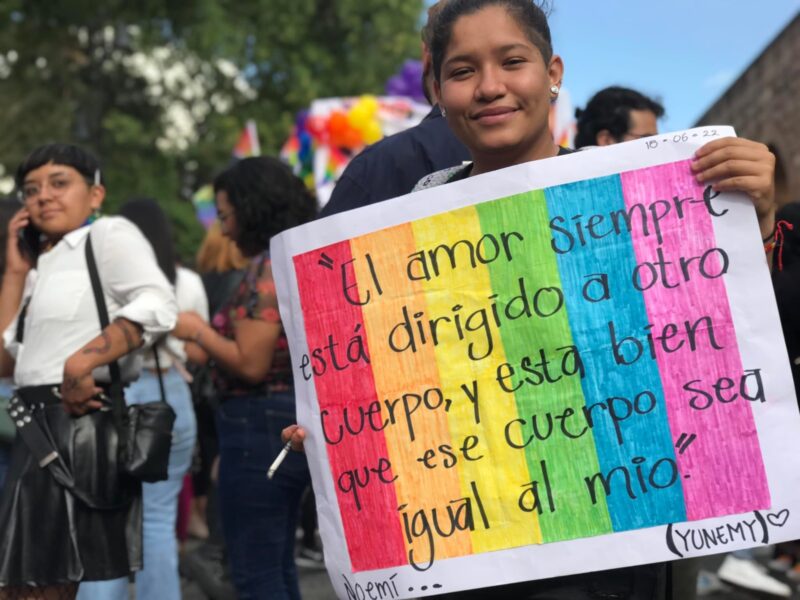 18-06-22
"El amor siempre
está dirigido a otro
cuerpo, y está bien
que ese cuerpo sea
igual al mío."
(YUNEMY)♡
Noemí...